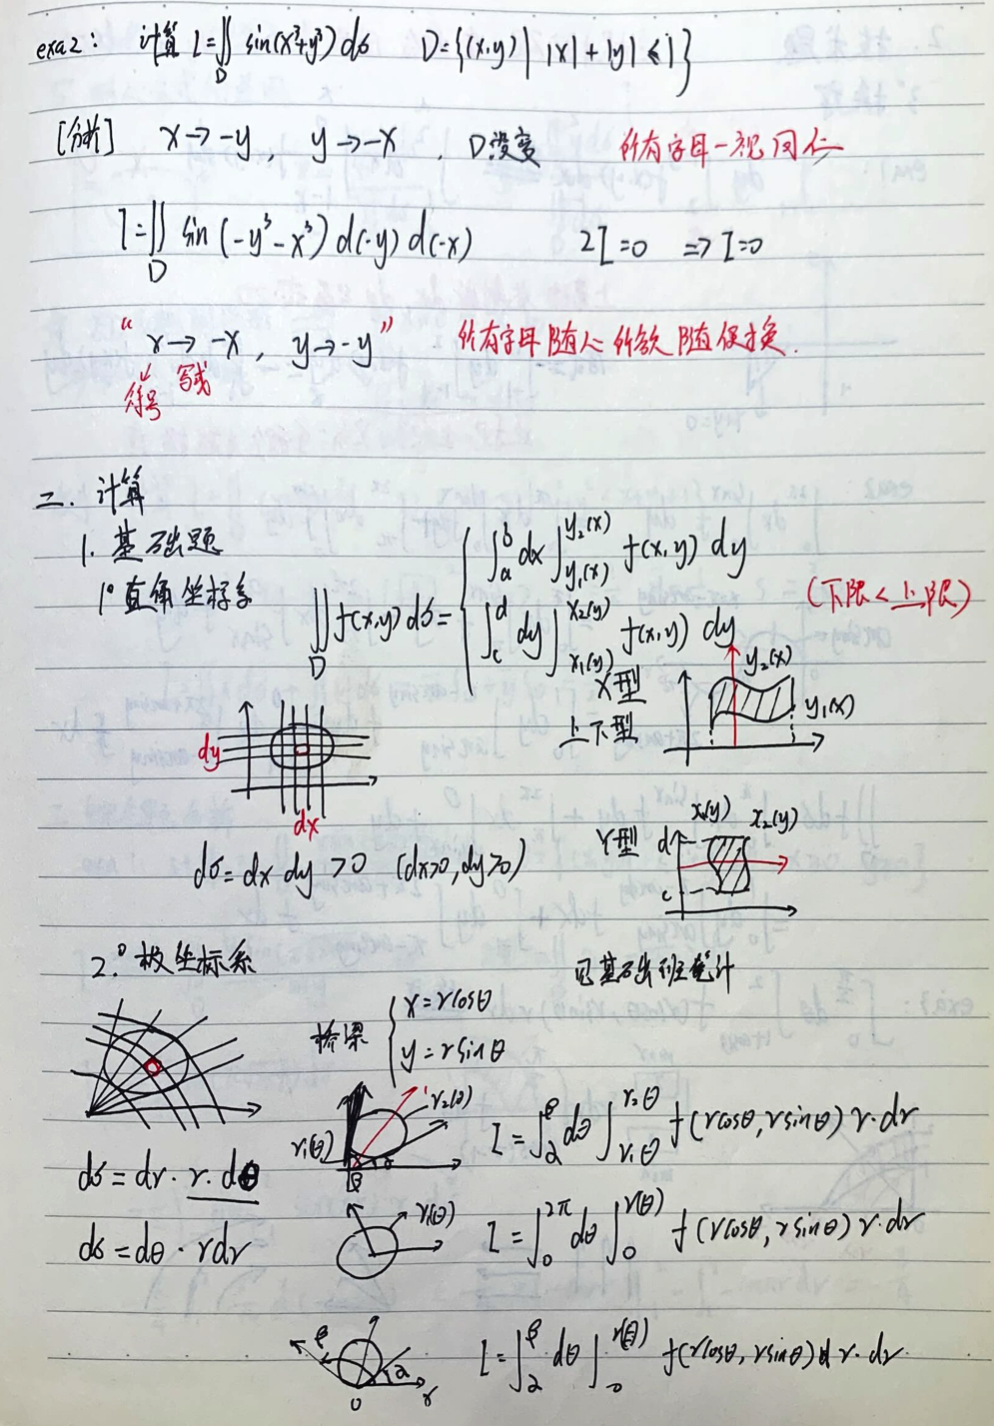 exa2: 计算 I=∬_D sin(x³+y³)dσ D={(x,y)| |x|+|y|≤1}
[分析] x→-y, y→-x. D没变 所有字母一视同仁
I=∬_D sin(-y³-x³)d(-y)d(-x) 2I=0 ⇒I=0
"x→-x, y→-y" 所有字母随人所欲随便换.
符号 写成
二. 计算
1. 基础题
1° 直角坐标系
∬_D f(x,y)dσ= { ∫_a^b dx∫_{y₁(x)}^{y₂(x)} f(x,y)dy
∫_c^d dy∫_{x₁(y)}^{x₂(y)} f(x,y)dy
(下限<上限)
X型
上下型
y₂(x)
y₁(x)
dy
dx
Y型 d c x₁(y) x₂(y)
dσ=dxdy>0 (dx>0,dy>0)
2.° 极坐标系 见基础班笔计
桥梁 { x=rcosθ
y=rsinθ
r₁(θ) r₂(θ) β
I=∫_α^β dθ∫_{r₁θ}^{r₂θ} f(rcosθ,rsinθ)r·dr
dσ=dr·r·dθ
r(θ) I=∫_0^{2π} dθ∫_0^{r(θ)} f(rcosθ,rsinθ)r·dr
dσ=dθ·rdr
β α O r I=∫_α^β dθ∫_0^{r(θ)} f(rcosθ,rsinθ) r·dr.